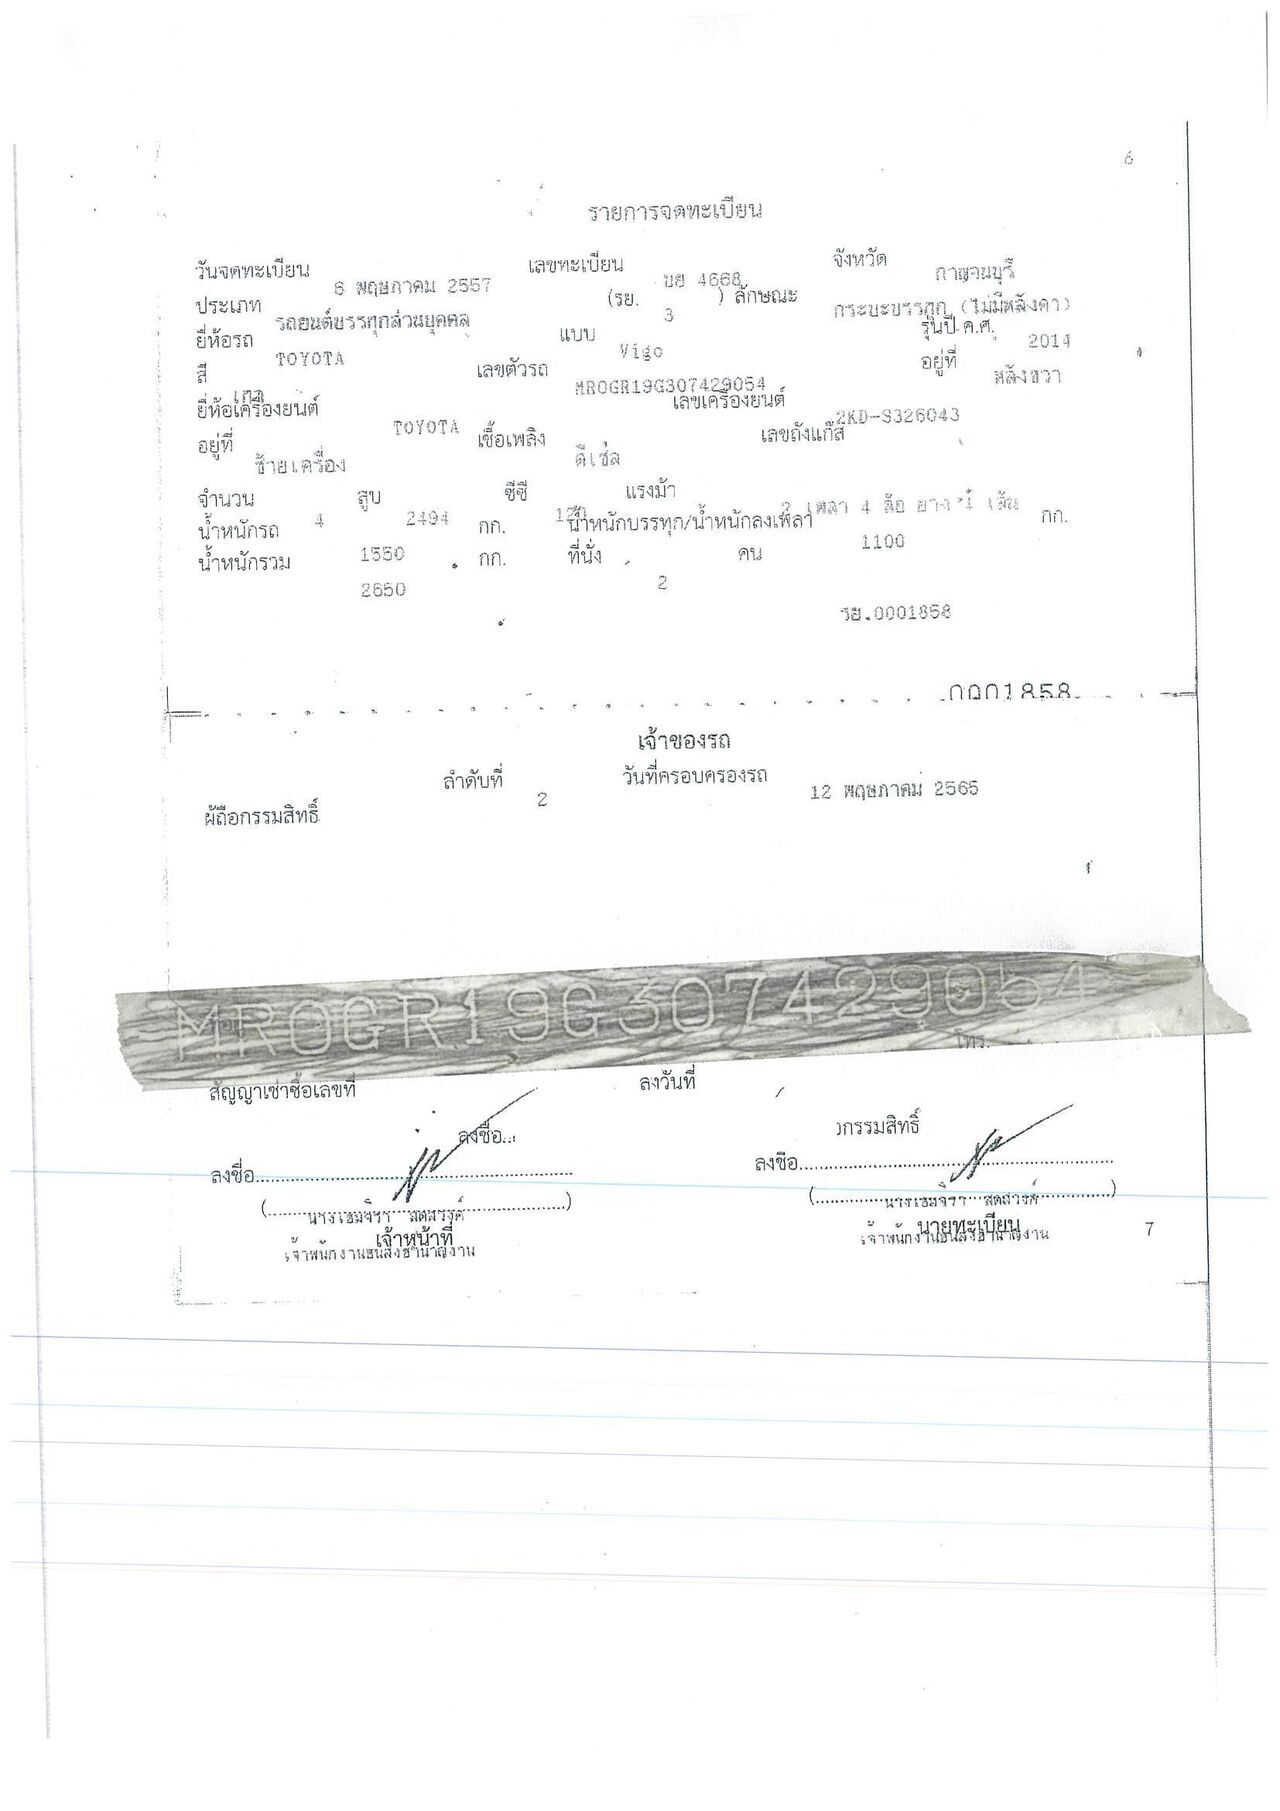 6
รายการจดทะเบียน
วันจดทะเบียน 6 พฤษภาคม 2557 เลขทะเบียน บย 4668 จังหวัด กาญจนบุรี
ประเภท รถยนต์บรรทุกส่วนบุคคล (รย. 3 ) ลักษณะ กระบะบรรทุก (ไม่มีหลังคา)
ยี่ห้อรถ TOYOTA แบบ Vigo รุ่นปี ค.ศ. 2014
สี เทา เลขตัวรถ MR0GR19G307429054 อยู่ที่ หลังขวา
ยี่ห้อเครื่องยนต์ TOYOTA เลขเครื่องยนต์ 2KD-S326043
อยู่ที่ ซ้ายเครื่อง เชื้อเพลิง ดีเซล เลขถังแก๊ส
จำนวน 4 สูบ 2494 ซีซี แรงม้า 2 เพลา 4 ล้อ ยาง เส้น
น้ำหนักรถ 1550 กก. น้ำหนักบรรทุก/น้ำหนักลงเพลา 1100 กก.
น้ำหนักรวม 2650 กก. ที่นั่ง 2 คน
รย.0001858
0001858
เจ้าของรถ
ลำดับที่ 2 วันที่ครอบครองรถ 12 พฤษภาคม 2565
ผู้ถือกรรมสิทธิ์
MR0GR19G307429054
โทร.
สัญญาเช่าซื้อเลขที่ ลงวันที่
ลงชื่อ... กรรมสิทธิ์
ลงชื่อ ลงชื่อ
เจ้าหน้าที่ นายทะเบียน
เจ้าพนักงานขนส่งชำนาญงาน เจ้าพนักงานขนส่งชำนาญงาน
7